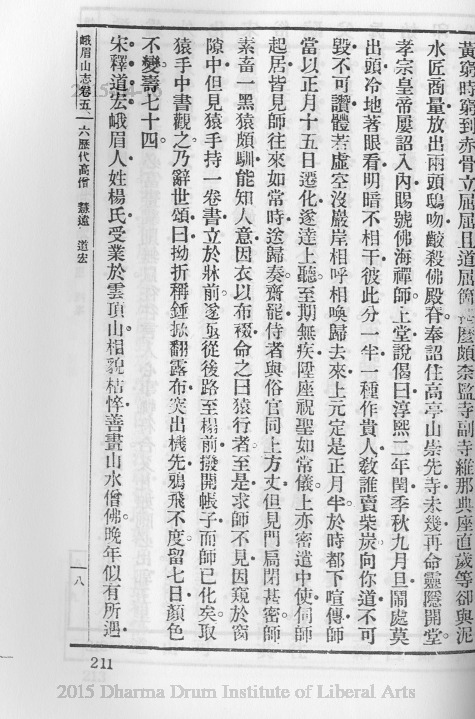 黃窮時窮到赤骨立屆屆且道屆箇
水匠商量放出兩頭鴟吻齩殺佛殿脊奉詔住高亭山崇先寺未幾再命靈隱開堂
孝宗皇帝屢詔入內賜號佛海禪師上堂說偈曰淳熙二年閏季秋九月旦鬧處莫
出頭冷地著眼看明暗不相干彼此分一半一種作貴人教誰賣柴炭向你道不可
毀不可讚體若虛空沒巖岸相呼相喚歸去來上元定是正月半於時都下喧傳師
當以正月十五日遷化遂達上聽至期無疾陞座祝聖如常儀上亦密遣中使伺師
起居皆見師往來如常時送歸奏齋罷侍者與俗官同上方丈但見門扃閉甚密師
素畜一黑猿頗馴能知人意因衣以布裰命之曰猿行者至是求師不見因窺於窗
隙中但見猿手持一卷書立於牀前遂亟從後路至榻前撥開帳子而師已化矣取
猿手中書觀之乃辭世頌曰拗折秤鎚掀翻露布突出機先鴉飛不度留七日顏色
不變壽七十四
宋釋道宏峨眉人姓楊氏受業於雲頂山相貌枯悴善畫山水僧佛晚年似有所遇
峨眉山志卷五 六歷代高僧 慧遠 道宏
八
211
2015 Dharma Drum Institute of Liberal Arts